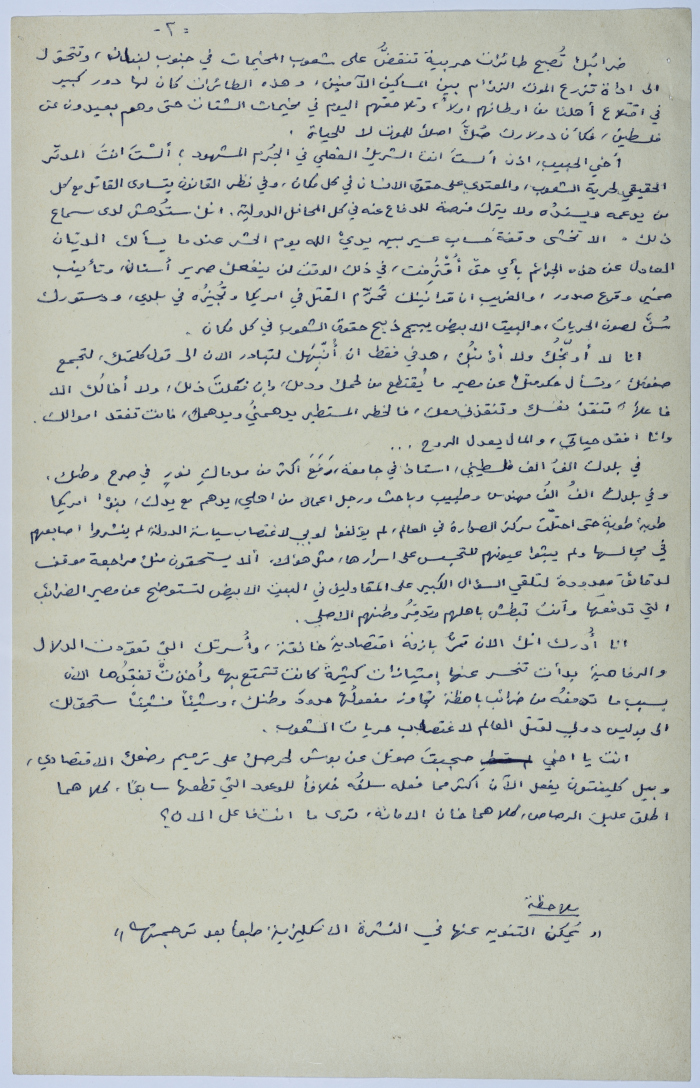 -٢-
ضرائبك تُصبح طائرات حربية تنقضُّ على شعوب المخيمات في جنوب لبنان، وتتحول
الى اداة تزرع الموت الزؤام بين المساكين الآمنين، وهذه الطائرات كان لها دور كبير
في اقتلاع أهلنا من اوطانهم اولاً، وتلاحقهم اليوم في مخيمات الشتات حتى وهم بعيدون عن
فلسطين، فكأن دولارك صُكَّ اصلاً للموت لا للحياة.
أخي الحبيب، اذن ألستَ انت الشريك الفعلي في الجُرم المشهود؛ ألسْتَ انتَ المدمّر
الحقيقي لحرية الشعوب، والمعتدي على حقوق الانسان في كل مكان، وفي نظر القانون يتساوى القاتل مع كل
من يدعمه ويسنده ولا يترك فرصة للدفاع عنه في كل المحافل الدولية. انك ستُدهش لدى سماع
ذلك. الا تخشى وقفة حساب عسير بين يديْ الله يوم الحشر عندما يسألك الديّان
العادل عن هذه الجرائم بأي حقّ أُقْتُرِفت، في ذلك الوقت لن ينفعك صرير أسنان، وتأنيب
ضمير وقرع صدور، والغريب ان قوانينك تُحرّم القتل في امريكا وتُجيزُه في بلدي، ودستورك
سُنَّ لصون الحريات، والبيت الابيض يبيح ذبح حقوق الشعوب في كل مكان.
انا لا أوبِّخُك ولا أؤنبُك، هدفي فقط ان أُنبِّهك لتبادر الان الى قول كلمتك، لتجمع
صفوفك، وتسأل حكومتك عن مصير ما يُقتطع من لحمك ودمك، وإن فعلتَ ذلك، ولا أخالُك الا
فاعلاً، تنقذ نفسك وتنقذني معك، فالخطر المستطير يدهمنيُ ويدهمك، فانت تفقد اموالك.
وانا افقد حياتي، والمال يعدل الروح ...
في بلدك الفُ الف فلسطيني، استاذ في جامعة، رَفَعَ اكثر من مدماك نور في صرح وطنك،
وفي بلدك الفُ الفُ مهندس وطبيب وباحث ورجل اعمال من اهلي، يدهم مع يدك، بنوْا امريكا
طوبة طوبة حتى احتلّت مركز الصدارة في العالم، لم يؤلفوا لوبي لاغتصاب سياسة الدولة، لم ينشروا اصابعهم
في مجالسها ولم يبثوا عيونهم للتجسس على اسرارها، مثل هؤلاء ألا يستحقون منك مراجعة موقف
لدقائق معدودة لتلقي السؤال الكبير على المقاولين في البيت الابيض لتستوضح عن مصير الضرائب
التي تدفعها وأنت تبطش باهلهم وتدمّرُ وطنهم الاصلي.
انا أُدرك انك الان تمرُّ بازمة اقتصادية خانقة، وأُسرتك التي تعودت الدلال
والرفاهية بدأت تنحسر عنها إمتيازات كثيرة كانت تتمتع بها وأخذتْ تفقدُها الان
بسبب ما تدفعُه من ضرائب باهظة تجاوز مفعولُها حدودَ وطنك، وشيئاً فشيئاً ستحوّلك
الى بوليس دولي لقتل العالم لاغتصاب حريات الشعوب.
انت يا اخي حجبتَ صوتك عن بوش لحرصك على ترميم وضعك الاقتصادي،
وبيل كلينتون يفعل الآن اكثر مما فعله سلفُه خلافاً للوعود التي قطعها سابقاً، كلاهما
اطلق عليك الرصاص، كلاهما خان الامانة، ترى ما انت فاعل الان؟
ملاحظة
"يُمكن التنويه عنها في النشرة الانكليزية، طبعا بعد ترجمتها"